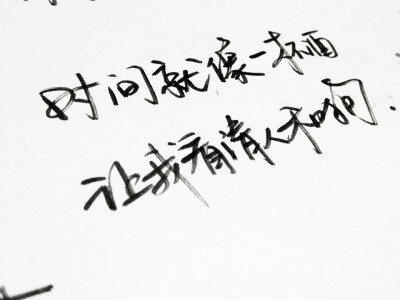 时间就像一杯酒
让我看清人和狗.